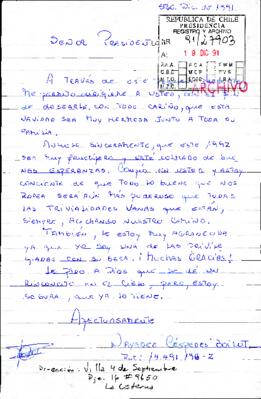 STGO. DIC. 15 1991.
SEÑOR PRESIDENTE
REPUBLICA DE CHILE
PRESIDENCIA
REGISTRO Y ARCHIVO
NR. 91/27903
19 DIC 91
ARCHIVO
A TRAVÉS DE
ME PERMITO DIRIGIRME A USTED, CON
DE DESEARLE, CON TODO CARIÑO, QUE ESTA
NAVIDAD SEA MUY HERMOSA JUNTO A TODA SU
FAMILIA.
SINCERAMENTE, QUE ESTE 1992
SEA MUY Y ESTÉ COLMADO DE BUE
NAS ESPERANZAS. CONFÍO EN USTED Y ESTOY
CONCIENTE DE QUE TODO LO BUENO QUE NOS
RODEA SERÁ AÚN MÁS PODEROSO QUE TODAS
LAS TRIVIALIDADES VANAS QUE ESTÁN,
SIEMPRE, ACECHANDO NUESTRO CAMINO.
TAMBIÉN, LE ESTOY MUY AGRADECIDA
YA QUE YO SOY UNA DE LAS PRIVILE
GIADAS CON SU BECA. ¡MUCHAS GRACIAS!
LE PIDO A DIOS QUE SE DÉ UN
RINCONCITO EN EL CIELO, PERO, ESTOY
SEGURA, QUE YA LO TIENE.
AFECTUOSAMENTE
CÉSPEDES
Dirección: Villa 4 de Septiembre
Pje. 16 # 9650
La Cisterna